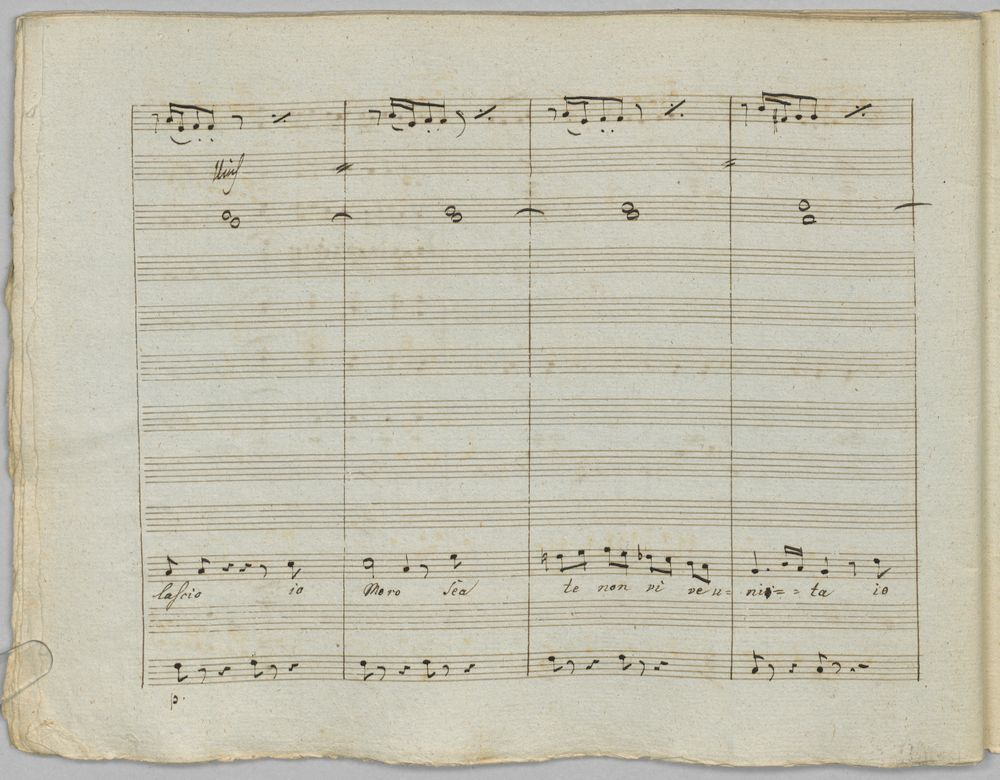 Unis
lascio io Moro Sea te non vi ve u= ni= = ta io
p.